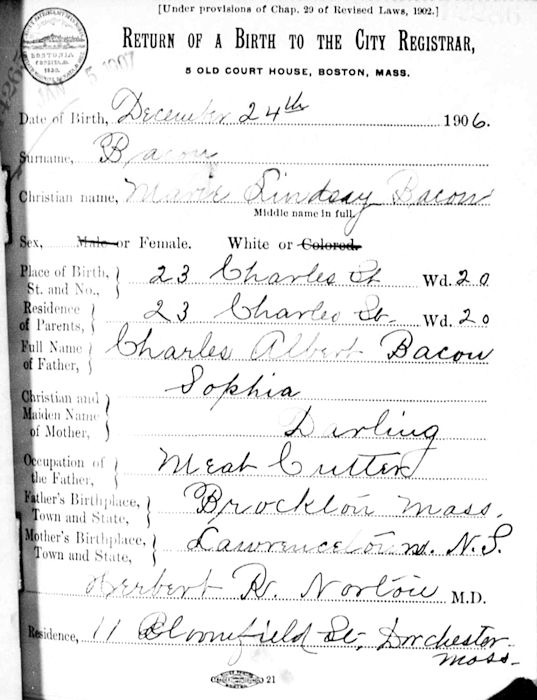 [Under provisions of Chap. 29 of Revised Laws, 1902.]
RETURN OF A BIRTH TO THE CITY REGISTRAR,
5 OLD COURT HOUSE, BOSTON, MASS.
BOSTONIA
JAN 5 1907
Date of Birth, December 24th 1906.
Surname, Bacon
Christian name, Marie Lindsay Bacon
Middle name in full.
Sex, Male or Female. White or Colored.
Place of Birth, St. and No., 23 Charles St Wd. 20
Residence of Parents, 23 Charles St. Wd. 20
Full Name of Father, Charles Albert Bacon
Christian and Maiden Name of Mother, Sophia
Darling
Occupation of the Father, Meat Cutter
Father's Birthplace, Town and State, Brockton Mass.
Mother's Birthplace, Town and State, Lawrencetown. N.S.
Herbert R. Norton M.D.
Residence, 11 Bloomfield St, Dorchester
Mass.
21